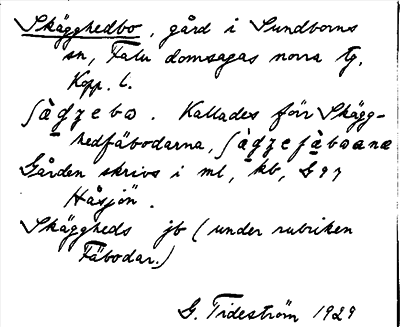 Skägghedbo, gård i Sundborns
sn, Falu domsagas norra tg,
Kopp. l.
Kallades förr Skägg-
hedfäbodarna,
Gården skrivs i ml, kb,
Håsjön.
Skäggheds jb (under rubriken
Fäbodar.)
G. Tideström 1929